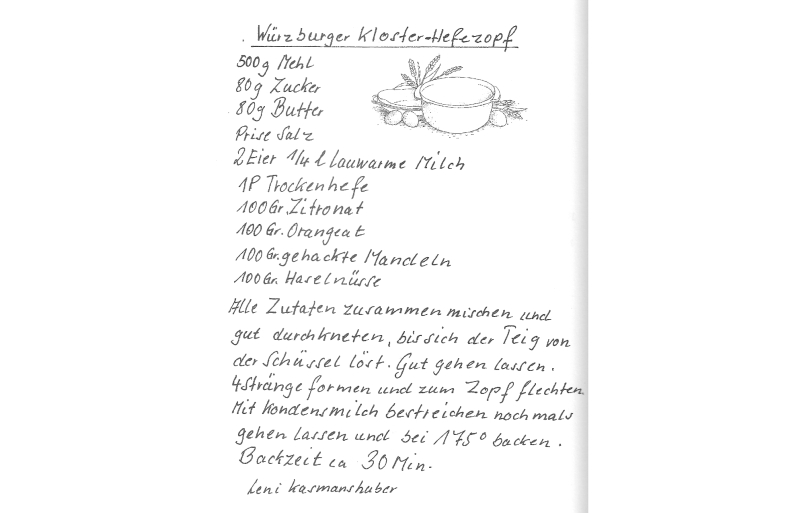 Würzburger Kloster-Hefezopf
500g Mehl
80g Zucker
80g Butter
Prise Salz
2 Eier 1/4 l lauwarme Milch
1P Trockenhefe
100Gr. Zitronat
100Gr. Orangeat
100Gr. gehackte Mandeln
100Gr. Haselnüsse
Alle Zutaten zusammen mischen und
gut durchkneten, bis sich der Teig von
der Schüssel löst. Gut gehen lassen.
4 Stränge formen und zum Zopf flechten
Mit Kondensmilch bestreichen nochmals
gehen lassen und bei 175° backen.
Backzeit ca 30 Min.
Leni Kasmanshuber